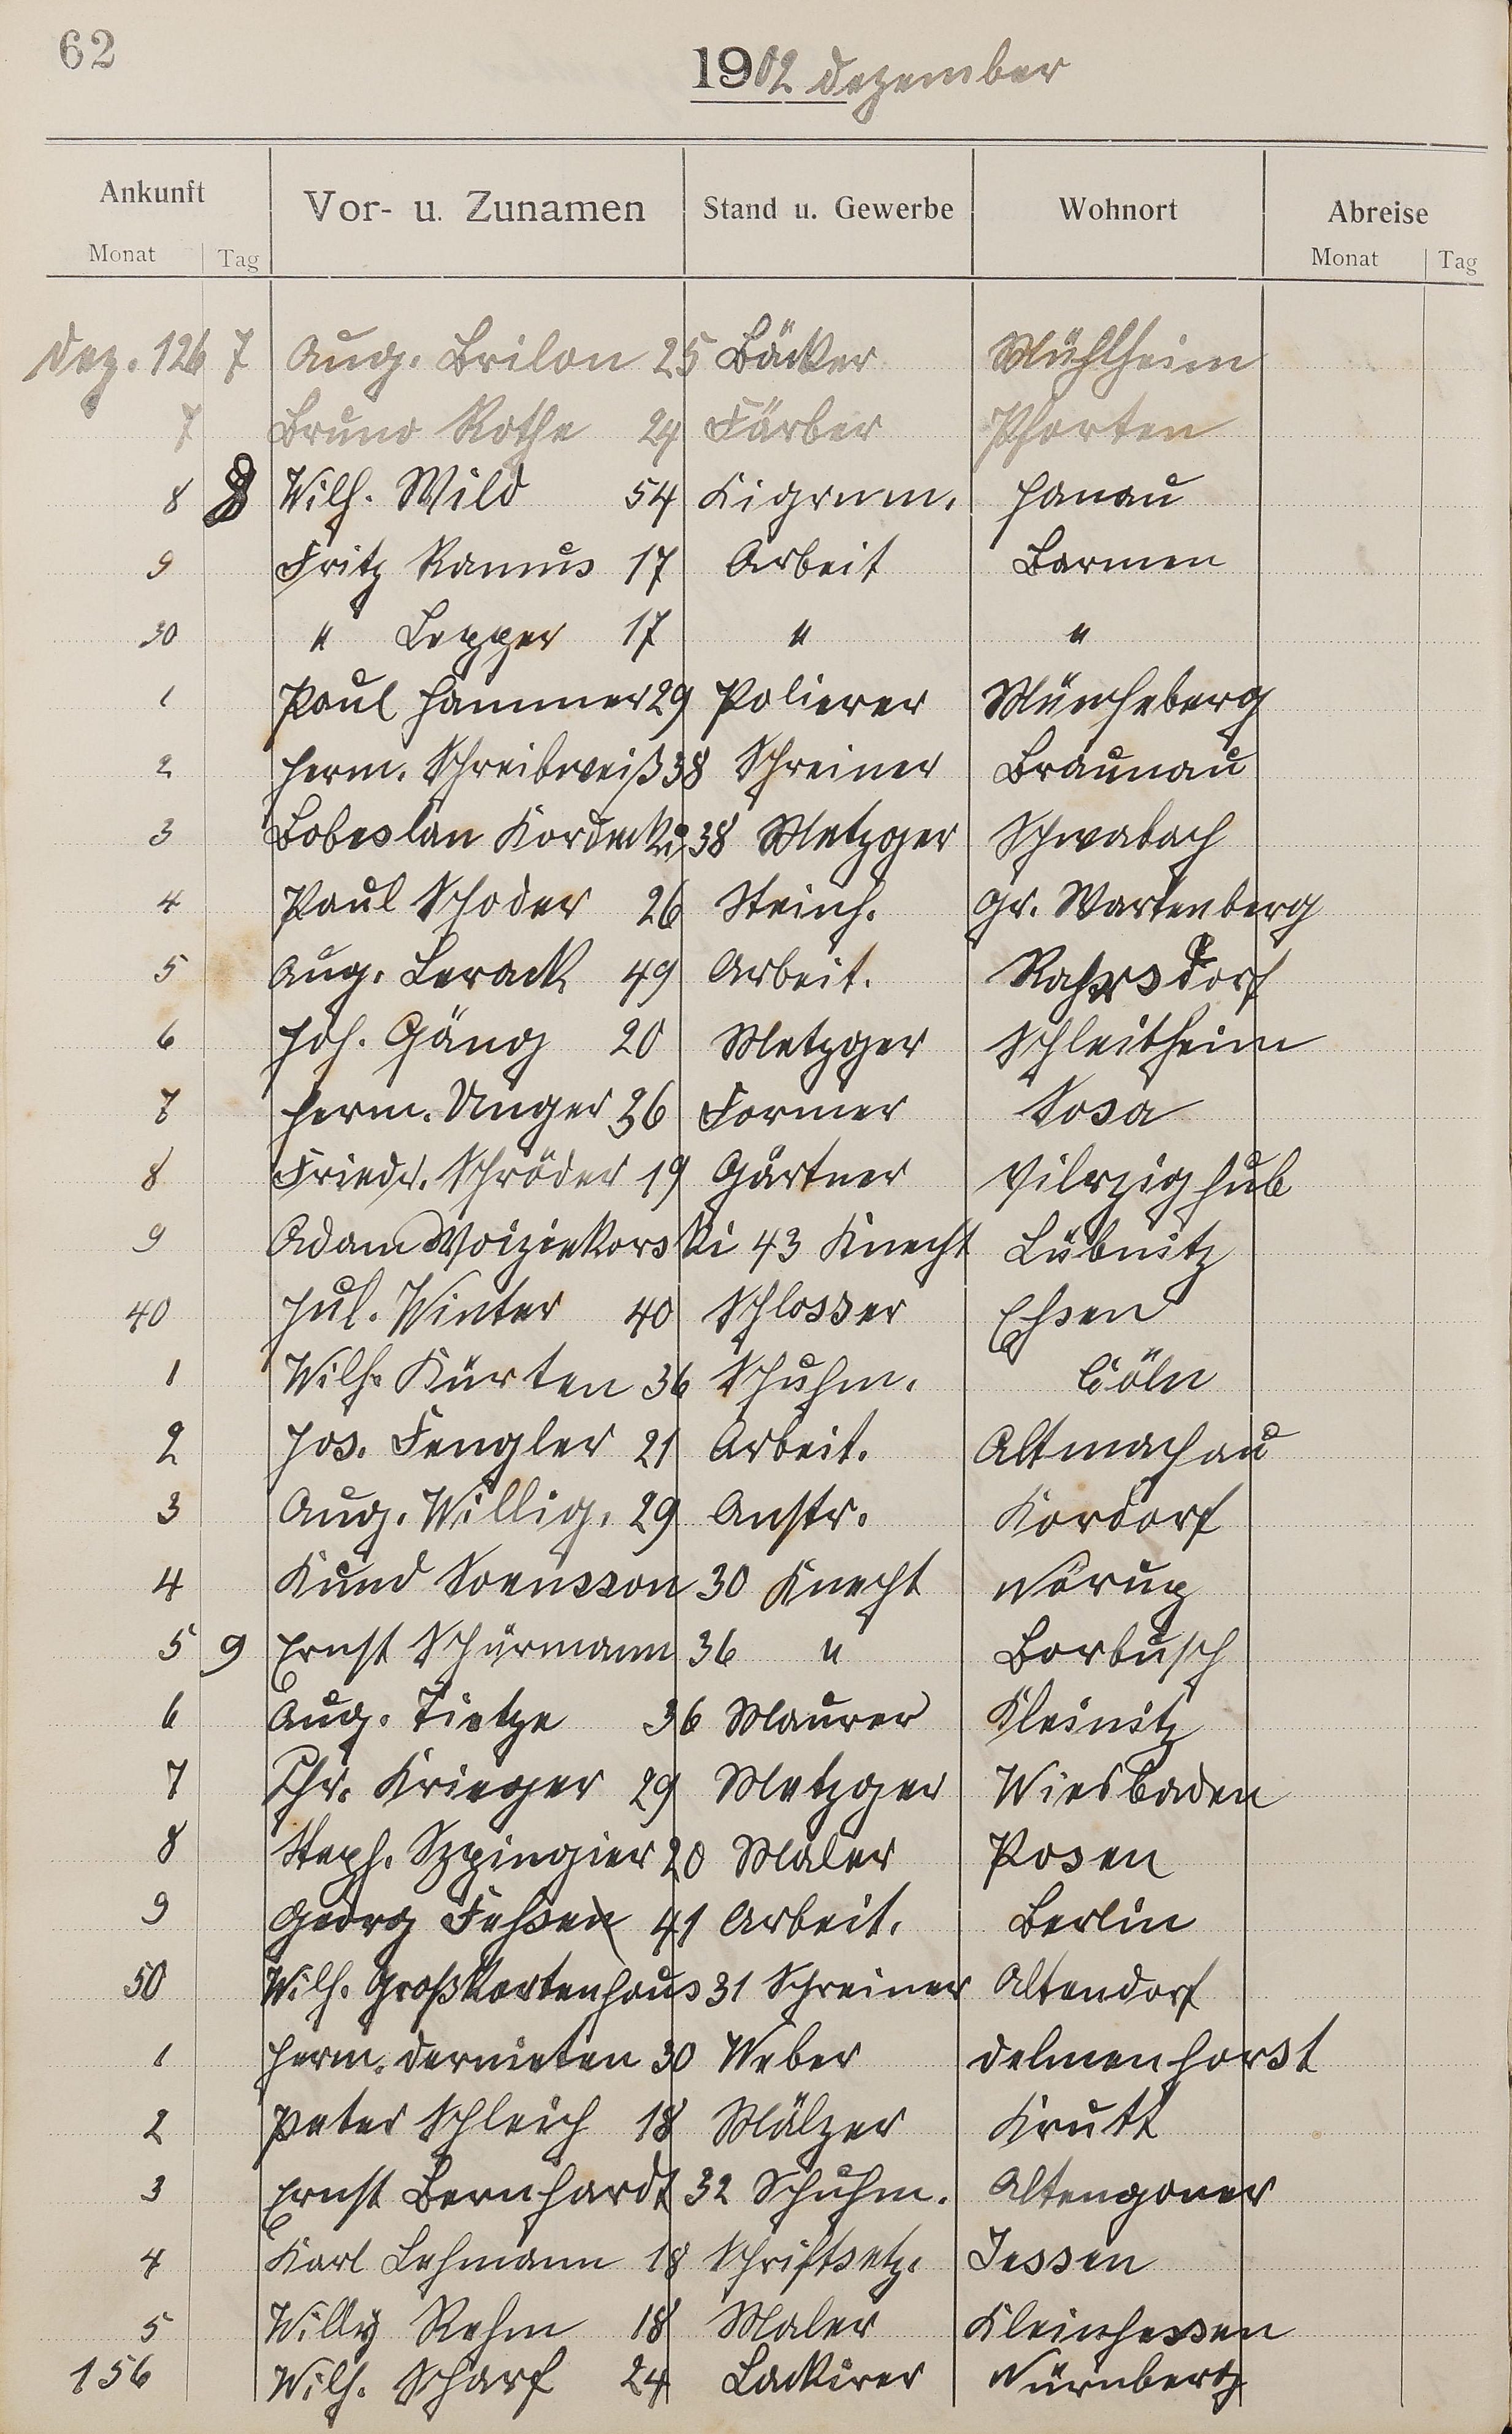 62
1902 Dezember
Ankunft Vor- u. Zunamen Stand u. Gewerbe Wohnort Abreise
Monat Tag Monat Tag
Dez. 126 7 Aug. Brilon 25 Bäcker Mühlheim
7 Bruno Rothe 24 Färber Pforten
8 8 Wilh. Wild 54 Zigrnm. Hanau
9 Fritz Ramus 17 Arbeit Barmen
30 " Lepper 17 " "
1 Paul Hammer 29 Polierer Müncheberg
2 Herm. Schreibweiß 38 Schreiner Braunau
3 Bobeslan Kordecki 38 Metzger Schwabach
4 Paul Schoder 26 Steinh. Gr. Wartenberg
5 Aug. Lerack 49 Arbeit. Rahrsdorf
6 Joh. Gäng 20 Metzger Schleitheim
7 Herm. Unger 36 Former Sosa
8 Friedr. Schröder 19 Gärtner Vilrzighub
9 Adam Woiziekorski 43 Knecht Lübnitz
40 Jul. Winter 40 Schlosser Essen
1 Wilh. Kürten 36 Schuhm. Cöln
2 Jos. Fengler 21 Arbeit. Altmachau
3 Aug. Willig. 29 Anstr. Kordorf
4 Kund Svensson 30 Knecht Nörup
5 9 Ernst Schürmann 36 " Borbusch
6 Aug. Tietze 36 Maurer Kleinitz
7 Chr. Krieger 29 Metzger Wiesbaden
8 Steph. Szpingier 20 Maler Posen
9 Georg Fehsen 41 Arbeit. Berlin
50 Wilh. Großkortenhaus 31 Schreiner Altendorf
1 Herm. Dermieten 30 Weber Delmenhorst
2 Peter Schleich 18 Mälzer Krutt
3 Ernst Bernhardt 32 Schuhm. Altengoner
4 Karl Lehmann 18 Schriftsetz. Jessen
5 Willy Rehm 18 Maler Kleinhessen
156 Wilh. Scharf 24 Lackirer Nürnberg